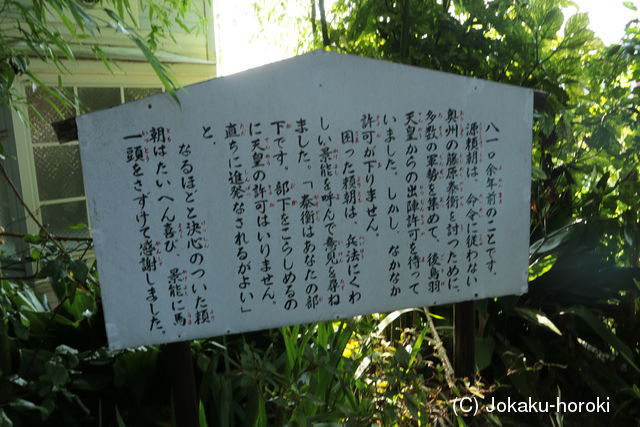 八一〇余年前のことです。
源頼朝は、命令に従わない
奥州の藤原泰衡を討つために、
多数の軍勢を集めて、後鳥羽
天皇からの出陣許可を待って
いました。しかし、なかなか
許可が下りません。
困った頼朝は、兵法にくわ
しい景能を呼んで意見を尋ね
ました。「泰衡はあなたの部
下です。部下をこらしめるの
に天皇の許可はいりません。
直ちに進発なされるがよい」
と。
なるほどと決心のついた頼
朝はたいへん喜び、景能に馬
一頭をさずけて感謝しました。
(C) Jokaku-horoki